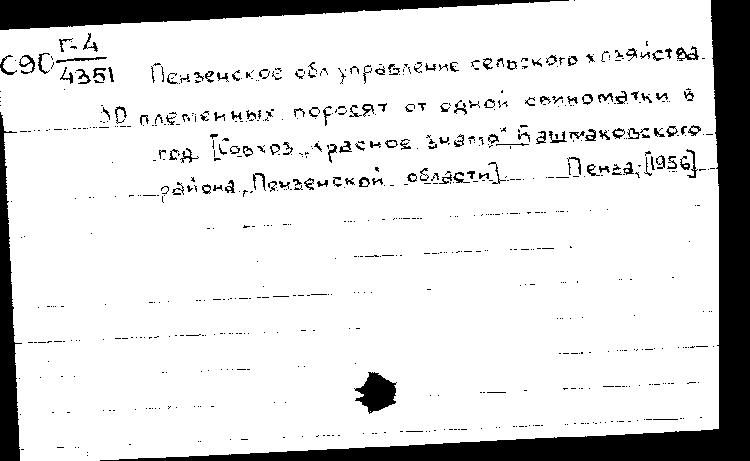 С90 Г-4/4351
Пензенское обл управление сельского хозяйства.
30 племенных поросят от одной свиноматки в
год. [Совхоз „Красное знамя", Башмаковского
района, Пензенской области]. Пенза, [1956].